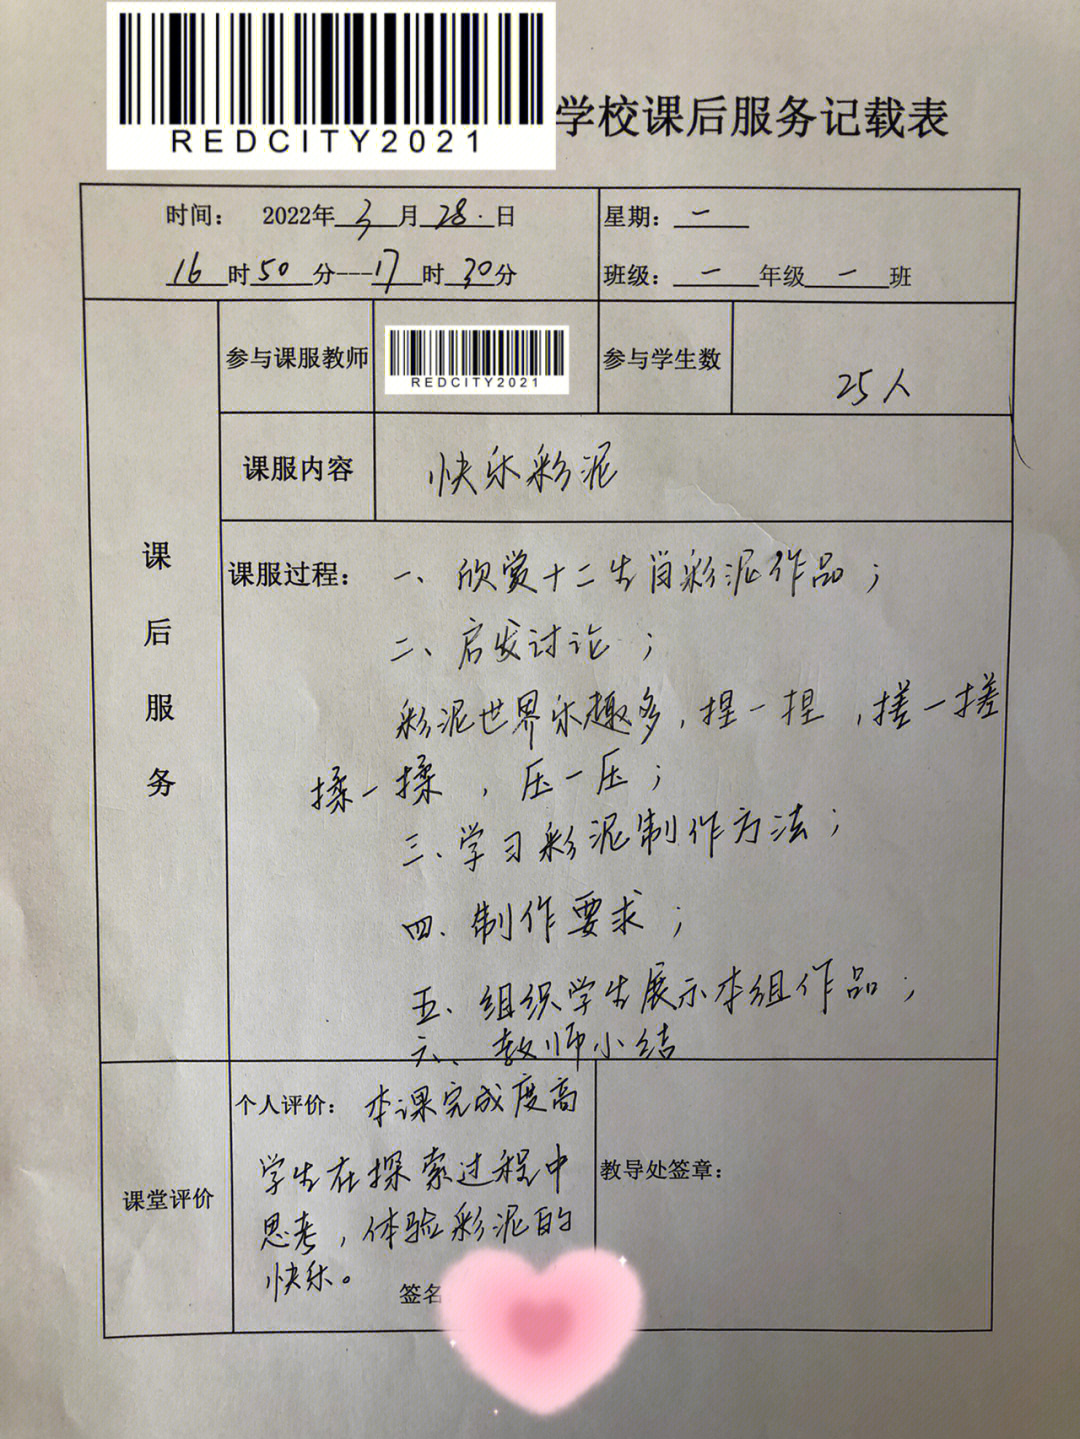 REDCITY2021
学校课后服务记载表
时间： 2022年3月28.日
星期：一
16时50分---17时30分
班级：一年级一班
参与课服教师
REDCITY2021
参与学生数
25人
课服内容
快乐彩泥
课后服务
课服过程：一、欣赏十二生肖彩泥作品；
二、启发讨论；
彩泥世界乐趣多，捏一捏，搓一搓
揉一揉，压一压；
三、学习彩泥制作方法；
四、制作要求；
五、组织学生展示本组作品；
六、教师小结
课堂评价
个人评价：本课完成度高
学生在探索过程中
思考，体验彩泥的
快乐。
签名
教导处签章：